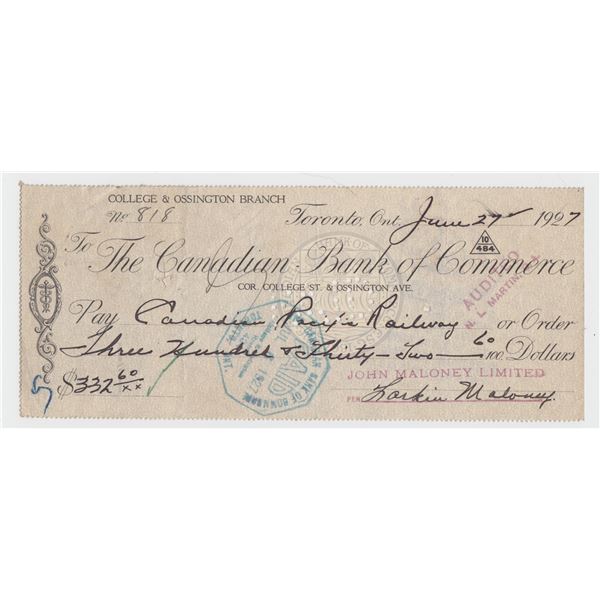 COLLEGE & OSSINGTON BRANCH
No 818
Toronto, Ont. June 27 1927
10
484
To The Canadian Bank of Commerce
COR. COLLEGE ST. & OSSINGTON AVE.
AUDITED
N. L. MARTIN
Pay Canadian Pacific Railway or Order
Three Hundred & Thirty-Two 60/100 Dollars
$332 60/xx
PAID
1927
BANK OF COMMERCE
JOHN MALONEY LIMITED
PER Larkin Maloney
5